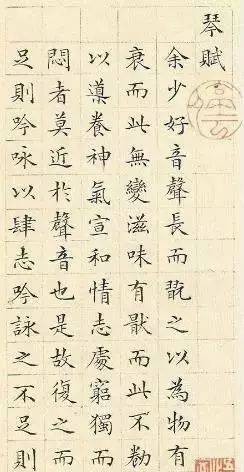 琴賦
余少好音聲長而翫之以為物有
衰而此無變滋味有猒而此不勌
以導養神氣宣和情志處窮獨而
悶者莫近於聲音也是故復之而
足則吟咏以肆志吟詠之不足則